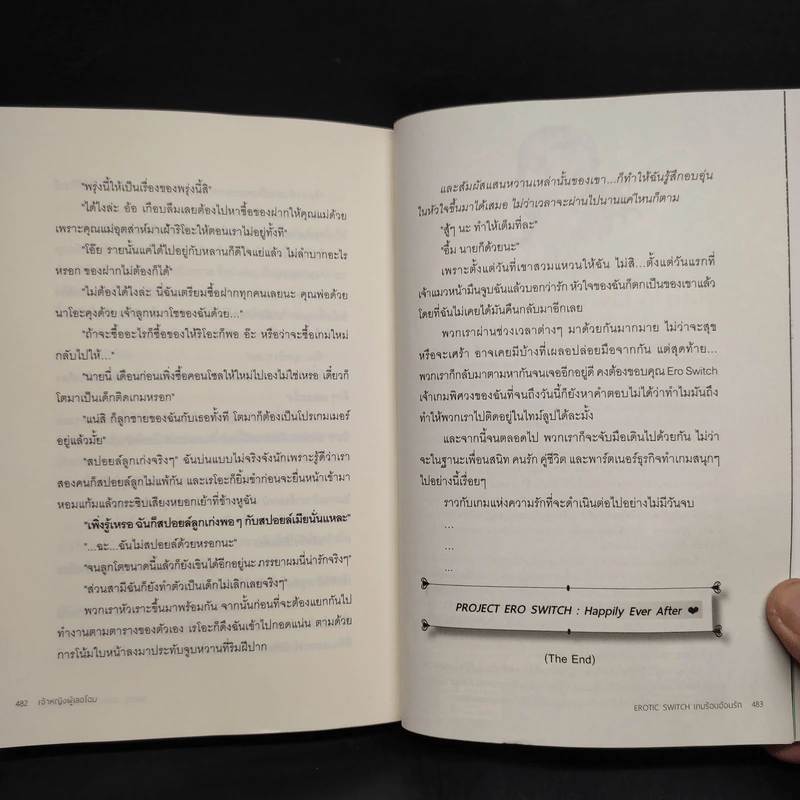 "พรุ่งนี้ให้เป็นเรื่องของพรุ่งนี้สิ"
"ได้ไงล่ะ อ้อ เกือบลืมเลยต้องไปหาซื้อของฝากให้คุณแม่ด้วย
เพราะคุณแม่อุตส่าห์มาเฝ้าริโอะให้ตอนเราไม่อยู่ทั้งที"
"โอ๊ย รายนั้นแค่ได้ไปอยู่กับหลานก็ดีใจแย่แล้ว ไม่ลำบากอะไร
หรอก ของฝากไม่ต้องก็ได้"
"ไม่ต้องได้ไงล่ะ นี่ฉันเตรียมซื้อฝากทุกคนเลยนะ คุณพ่อด้วย
นาโอะคุงด้วย เจ้าลูกหมาโชของฉันด้วย..."
"ถ้าจะซื้ออะไรก็ซื้อของให้ริโอะก็พอ อ๊ะ หรือว่าจะซื้อเกมใหม่
กลับไปให้..."
"นายนี่ เดือนก่อนเพิ่งซื้อคอนโซลให้ใหม่ไปเองไม่ใช่เหรอ เดี๋ยวก็
โตมาเป็นเด็กติดเกมหรอก"
"แน่สิ ก็ลูกชายของฉันกับเธอทั้งที โตมาก็ต้องเป็นโปรเกมเมอร์
อยู่แล้วมั้ย"
"สปอยล์ลูกเก่งจริงๆ" ฉันบ่นแบบไม่จริงจังนักเพราะรู้ดีว่าเรา
สองคนก็สปอยล์ลูกไม่แพ้กัน และเรโอะก็ยิ้มขำก่อนจะยื่นหน้าเข้ามา
หอมแก้มแล้วกระซิบเสียงหยอกเย้าที่ข้างหูฉัน
"เพิ่งรู้เหรอ ฉันก็สปอยล์ลูกเก่งพอๆ กับสปอยล์เมียนั่นแหละ"
"...ฉะ...ฉันไม่สปอยล์ด้วยหรอกนะ"
"จนลูกโตขนาดนี้แล้วก็ยังเขินได้อีกอยู่นะ ภรรยาผมนี่น่ารักจริงๆ"
"ส่วนสามีฉันก็ยังทำตัวเป็นเด็กไม่เลิกเลยจริงๆ"
พวกเราหัวเราะขึ้นมาพร้อมกัน จากนั้นก่อนที่จะต้องแยกกันไป
ทำงานตามตารางของตัวเอง เรโอะก็ดึงฉันเข้าไปกอดแน่น ตามด้วย
การโน้มใบหน้าลงมาประทับจูบหวานที่ริมฝีปาก
482 เจ้าหญิงผู้เลอโฉม
และสัมผัสแสนหวานเหล่านั้นของเขา...ก็ทำให้ฉันรู้สึกอบอุ่น
ในหัวใจขึ้นมาได้เสมอ ไม่ว่าเวลาจะผ่านไปนานแค่ไหนก็ตาม
"สู้ๆ นะ ทำให้เต็มที่ละ"
"อื้ม นายก็ด้วยนะ"
เพราะตั้งแต่วันที่เขาสวมแหวนให้ฉัน ไม่สิ...ตั้งแต่วันแรกที่
เจ้าแมวหน้ามึนจูบฉันแล้วบอกว่ารัก หัวใจของฉันก็ตกเป็นของเขาแล้ว
โดยที่ฉันไม่เคยได้มันคืนกลับมาอีกเลย
พวกเราผ่านช่วงเวลาต่างๆ มาด้วยกันมากมาย ไม่ว่าจะสุข
หรือจะเศร้า อาจเคยมีบ้างที่เผลอปล่อยมือจากกัน แต่สุดท้าย...
พวกเราก็กลับมาตามหากันจนเจออีกอยู่ดี คงต้องขอบคุณ Ero Switch
เจ้าเกมพิศวงของฉันที่จนถึงวันนี้ก็ยังหาคำตอบไม่ได้ว่าทำไมมันถึง
ทำให้พวกเราไปติดอยู่ในไทม์ลูปได้ละมั้ง
และจากนี้จนตลอดไป พวกเราก็จะจับมือเดินไปด้วยกัน ไม่ว่า
จะในฐานะเพื่อนสนิท คนรัก คู่ชีวิต และพาร์ตเนอร์ธุรกิจทำเกมสนุกๆ
ไปอย่างนี้เรื่อยๆ
ราวกับเกมแห่งความรักที่จะดำเนินต่อไปอย่างไม่มีวันจบ
...
...
...
PROJECT ERO SWITCH : Happily Ever After ❤
(The End)
EROTIC SWITCH เกมร้อนอ้อนรัก 483